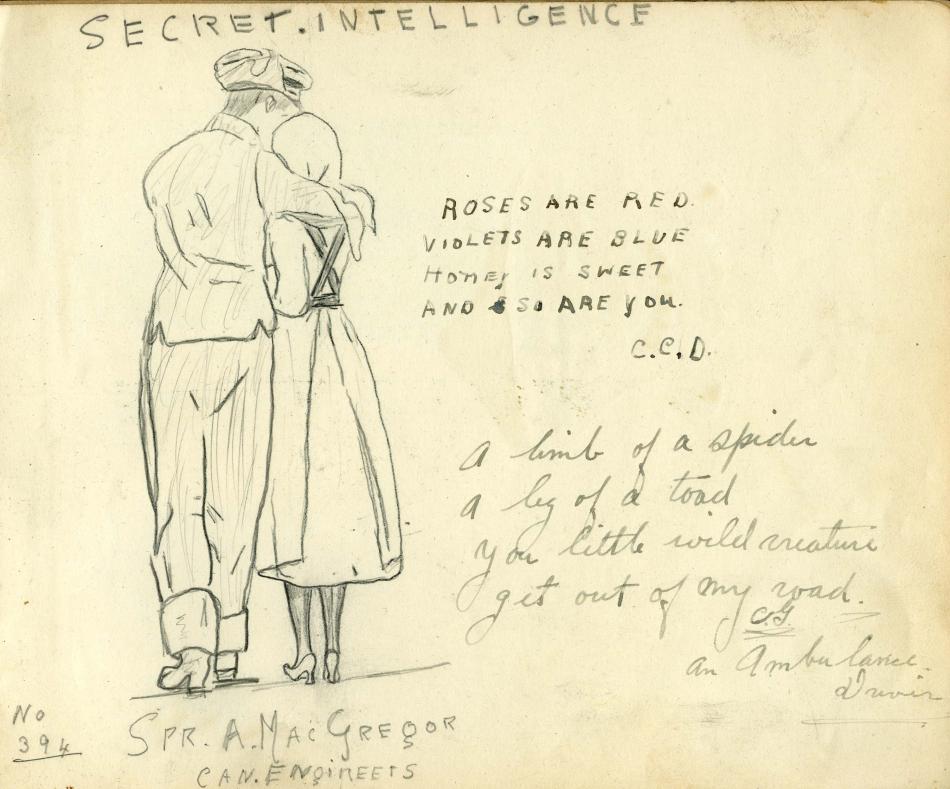 SECRET. INTELLIGENCE
ROSES ARE RED.
VIOLETS ARE BLUE
HONEY IS SWEET
AND SO ARE YOU.
C.C.D.
A limb of a spider
a leg of a toad
you little wild creature
get out of my road.
C.G.
an Ambulance.
Driver
No
394
SPR. A. MACGREGOR
CAN. ENGINEERS